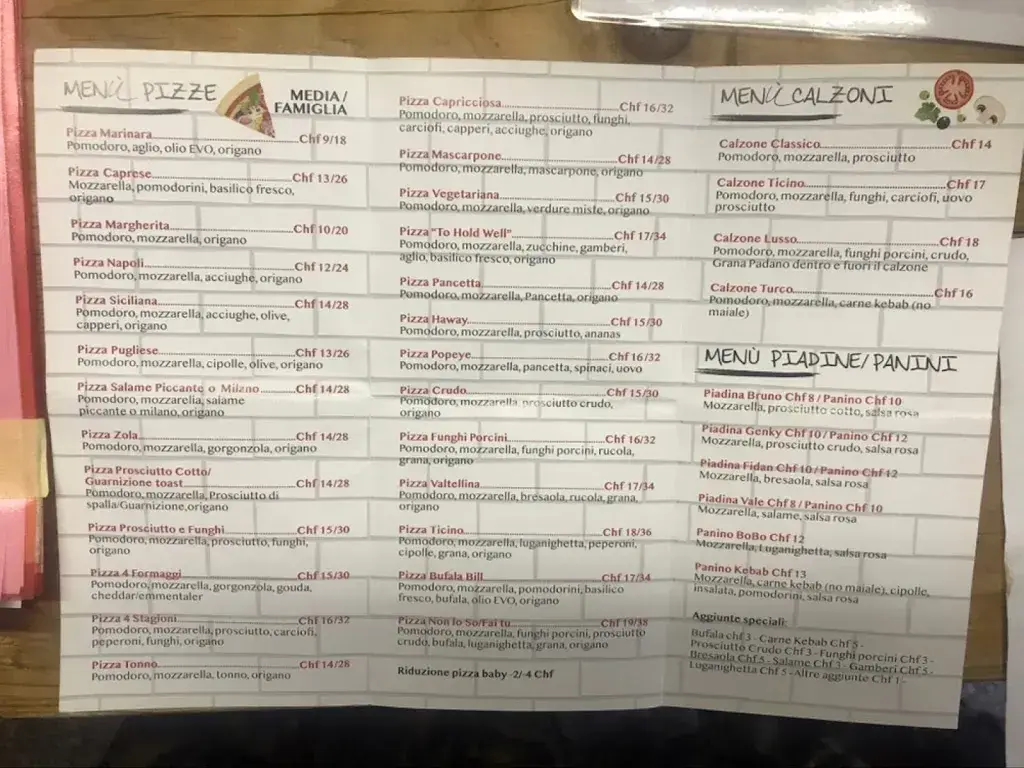 MENÙ PIZZE
MEDIA/
FAMIGLIA
Pizza Marinara Chf 9/18
Pomodoro, aglio, olio EVO, origano
Pizza Caprese Chf 13/26
Mozzarella, pomodorini, basilico fresco,
origano
Pizza Margherita Chf 10/20
Pomodoro, mozzarella, origano
Pizza Napoli Chf 12/24
Pomodoro, mozzarella, acciughe, origano
Pizza Siciliana Chf 14/28
Pomodoro, mozzarella, acciughe, olive,
capperi, origano
Pizza Pugliese Chf 13/26
Pomodoro, mozzarella, cipolle, olive, origano
Pizza Salame Piccante o Milano Chf 14/28
Pomodoro, mozzarella, salame
piccante o milano, origano
Pizza Zola Chf 14/28
Pomodoro, mozzarella, gorgonzola, origano
Pizza Prosciutto Cotto/
Guarnizione toast Chf 14/28
Pomodoro, mozzarella, Prosciutto di
spalla/Guarnizione, origano
Pizza Prosciutto e Funghi Chf 15/30
Pomodoro, mozzarella, prosciutto, funghi,
origano
Pizza 4 Formaggi Chf 15/30
Pomodoro, mozzarella, gorgonzola, gouda,
cheddar/emmentaler
Pizza 4 Stagioni Chf 16/32
Pomodoro, mozzarella, prosciutto, carciofi,
peperoni, funghi, origano
Pizza Tonno Chf 14/28
Pomodoro, mozzarella, tonno, origano
Pizza Capricciosa Chf 16/32
Pomodoro, mozzarella, prosciutto, funghi,
carciofi, capperi, acciughe, origano
Pizza Mascarpone Chf 14/28
Pomodoro, mozzarella, mascarpone, origano
Pizza Vegetariana Chf 15/30
Pomodoro, mozzarella, verdure miste, origano
Pizza "To Hold Well" Chf 17/34
Pomodoro, mozzarella, zucchine, gamberi,
aglio, basilico fresco, origano
Pizza Pancetta Chf 14/28
Pomodoro, mozzarella, Pancetta, origano
Pizza Haway Chf 15/30
Pomodoro, mozzarella, prosciutto, ananas
Pizza Popeye Chf 16/32
Pomodoro, mozzarella, pancetta, spinaci, uovo
Pizza Crudo Chf 15/30
Pomodoro, mozzarella, prosciutto crudo,
origano
Pizza Funghi Porcini Chf 16/32
Pomodoro, mozzarella, funghi porcini, rucola,
grana, origano
Pizza Valtellina Chf 17/34
Pomodoro, mozzarella, bresaola, rucola, grana,
origano
Pizza Ticino Chf 18/36
Pomodoro, mozzarella, luganighetta, peperoni,
cipolle, grana, origano
Pizza Bufala Bill Chf 17/34
Pomodoro, mozzarella, pomodorini, basilico
fresco, bufala, olio EVO, origano
Pizza Non lo So/Fai tu Chf 19/38
Pomodoro, mozzarella, funghi porcini, prosciutto
crudo, bufala, luganighetta, grana, origano
Riduzione pizza baby -2/-4 Chf
MENÙ CALZONI
Calzone Classico Chf 14
Pomodoro, mozzarella, prosciutto
Calzone Ticino Chf 17
Pomodoro, mozzarella, funghi, carciofi, uovo
prosciutto
Calzone Lusso Chf 18
Pomodoro, mozzarella, funghi porcini, crudo,
Grana Padano dentro e fuori il calzone
Calzone Turco Chf 16
Pomodoro, mozzarella, carne kebab (no
maiale)
MENÙ PIADINE/PANINI
Piadina Bruno Chf 8 / Panino Chf 10
Mozzarella, prosciutto cotto, salsa rosa
Piadina Genky Chf 10 / Panino Chf 12
Mozzarella, prosciutto crudo, salsa rosa
Piadina Fidan Chf 10 / Panino Chf 12
Mozzarella, bresaola, salsa rosa
Piadina Vale Chf 8 / Panino Chf 10
Mozzarella, salame, salsa rosa
Panino BoBo Chf 12
Mozzarella, Luganighetta, salsa rosa
Panino Kebab Chf 13
Mozzarella, carne kebab (no maiale), cipolle,
insalata, pomodorini, salsa rosa
Aggiunte speciali:
Bufala chf 3 - Carne Kebab Chf 5 -
Prosciutto Crudo Chf 3 - Funghi porcini Chf 3 -
Bresaola Chf 5 - Salame Chf 3 - Gamberi Chf 5 -
Luganighetta Chf 5 - Altre aggiunte Chf 1 -